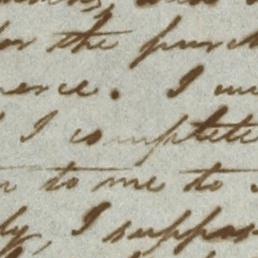 for the purch
ence. I
I complete
to me to
ly, I suppos